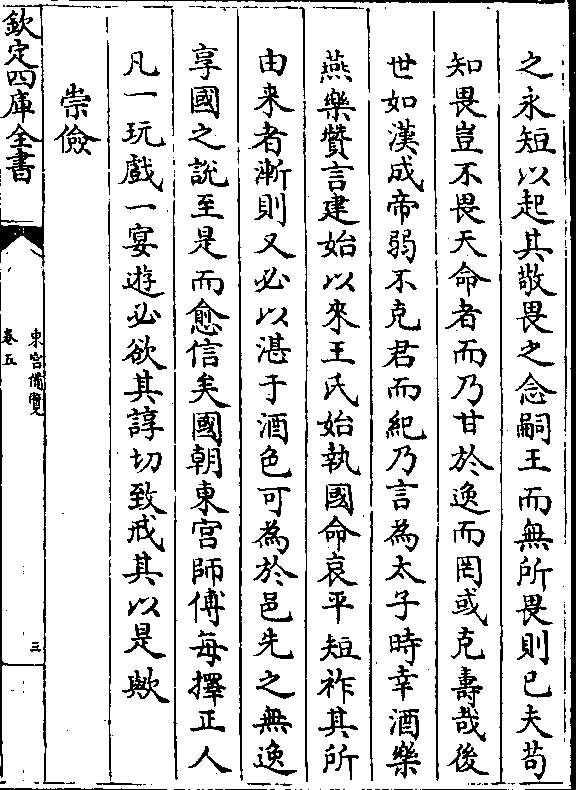 之永短以起其敬畏之念嗣王而無所畏則已夫苟
知畏豈不畏天命者而乃甘於逸而罔或克壽哉後
世如漢成帝弱不克君而紀乃言為太子時幸酒樂
燕樂贊言建始以來王氏始執國命哀平短祚其所
由来者漸則又必以湛于酒色可為於邑先之無逸
享國之說至是而愈信矣國朝東宫師傅每擇正人
凡一玩戲一宴遊必欲其諄切致戒其以是歟
崇儉
欽定四庫全書
東宫備覽
卷五
三